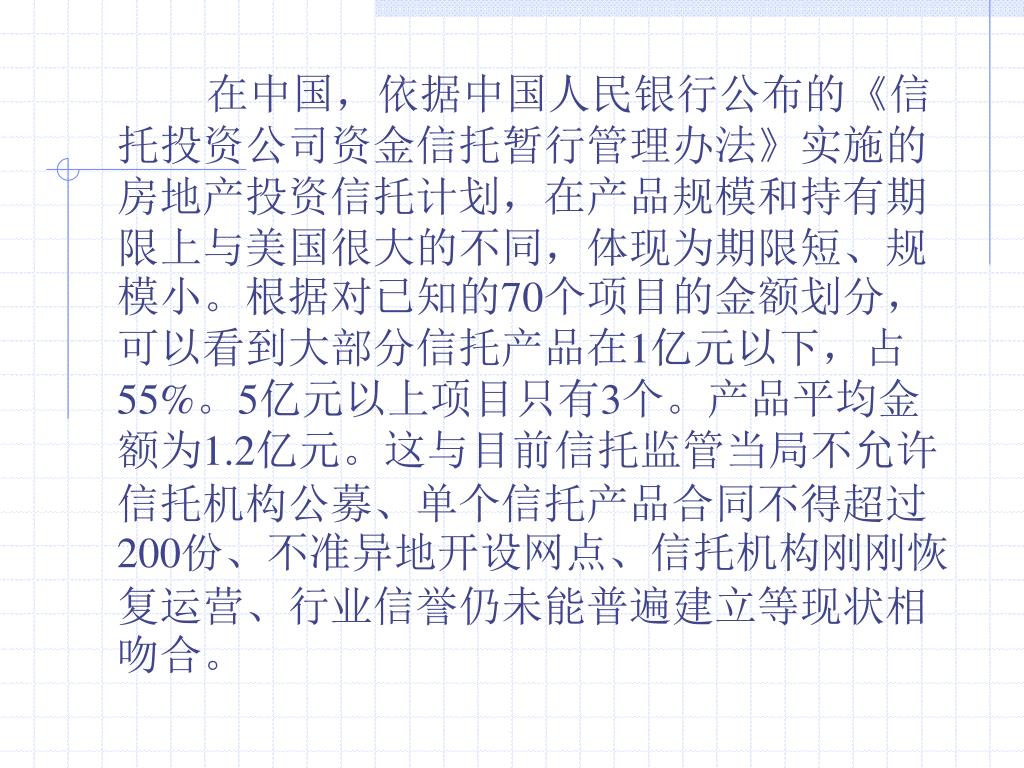 在中国，依据中国人民银行公布的《信
托投资公司资金信托暂行管理办法》实施的
房地产投资信托计划，在产品规模和持有期
限上与美国很大的不同，体现为期限短、规
模小。根据对已知的70个项目的金额划分，
可以看到大部分信托产品在1亿元以下，占
55%。5亿元以上项目只有3个。产品平均金
额为1.2亿元。这与目前信托监管当局不允许
信托机构公募、单个信托产品合同不得超过
200份、不准异地开设网点、信托机构刚刚恢
复运营、行业信誉仍未能普遍建立等现状相
吻合。